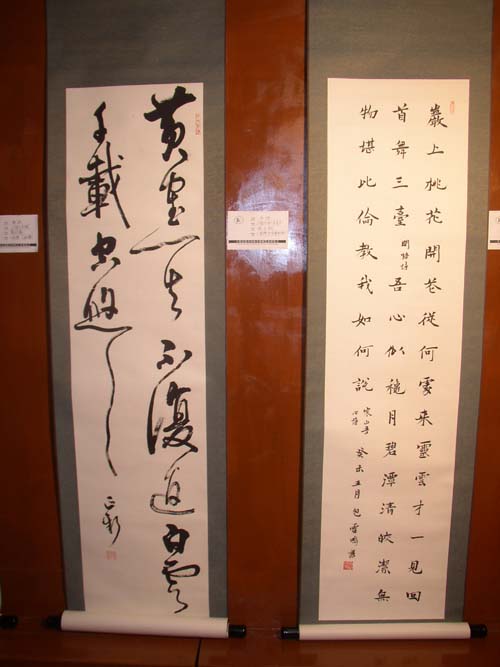 黃鶴一去不復返白雲
千載空悠悠
巖上桃花開花從何處来靈雲才一見回
首舞三臺
開悟詩
吾心似穐月碧潭清皎潔無
物堪比倫教我如何說
寒山子
癸未五月包